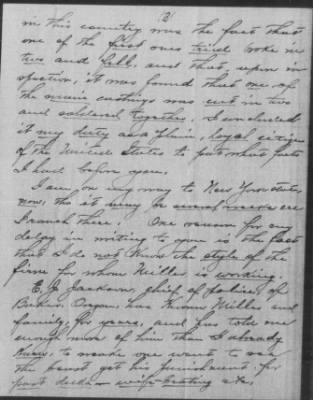 2
in this country was the fact that
one of the first ones tried broke in
two and fell, and that, upon in-
spection, it was found that one of
the main castings was cut in two
and soldered together. I concluded
it my duty as a plain, loyal citizen
of the United States to put what facts
I had before you.
I am on my way to New York state,
now, tho it may be several weeks ere
I reach there. One reason for my
delay in writing to you is the fact
that I do not know the style of the
firm for whom Miller is working.
E. J. Jackson, chief of police, of
Baker, Oregon, has known Miller and
family, for years, and has told me
enough more of him than I already
knew, to make one want to see
the beast get his punishment for
past deeds — wife-beating etc.